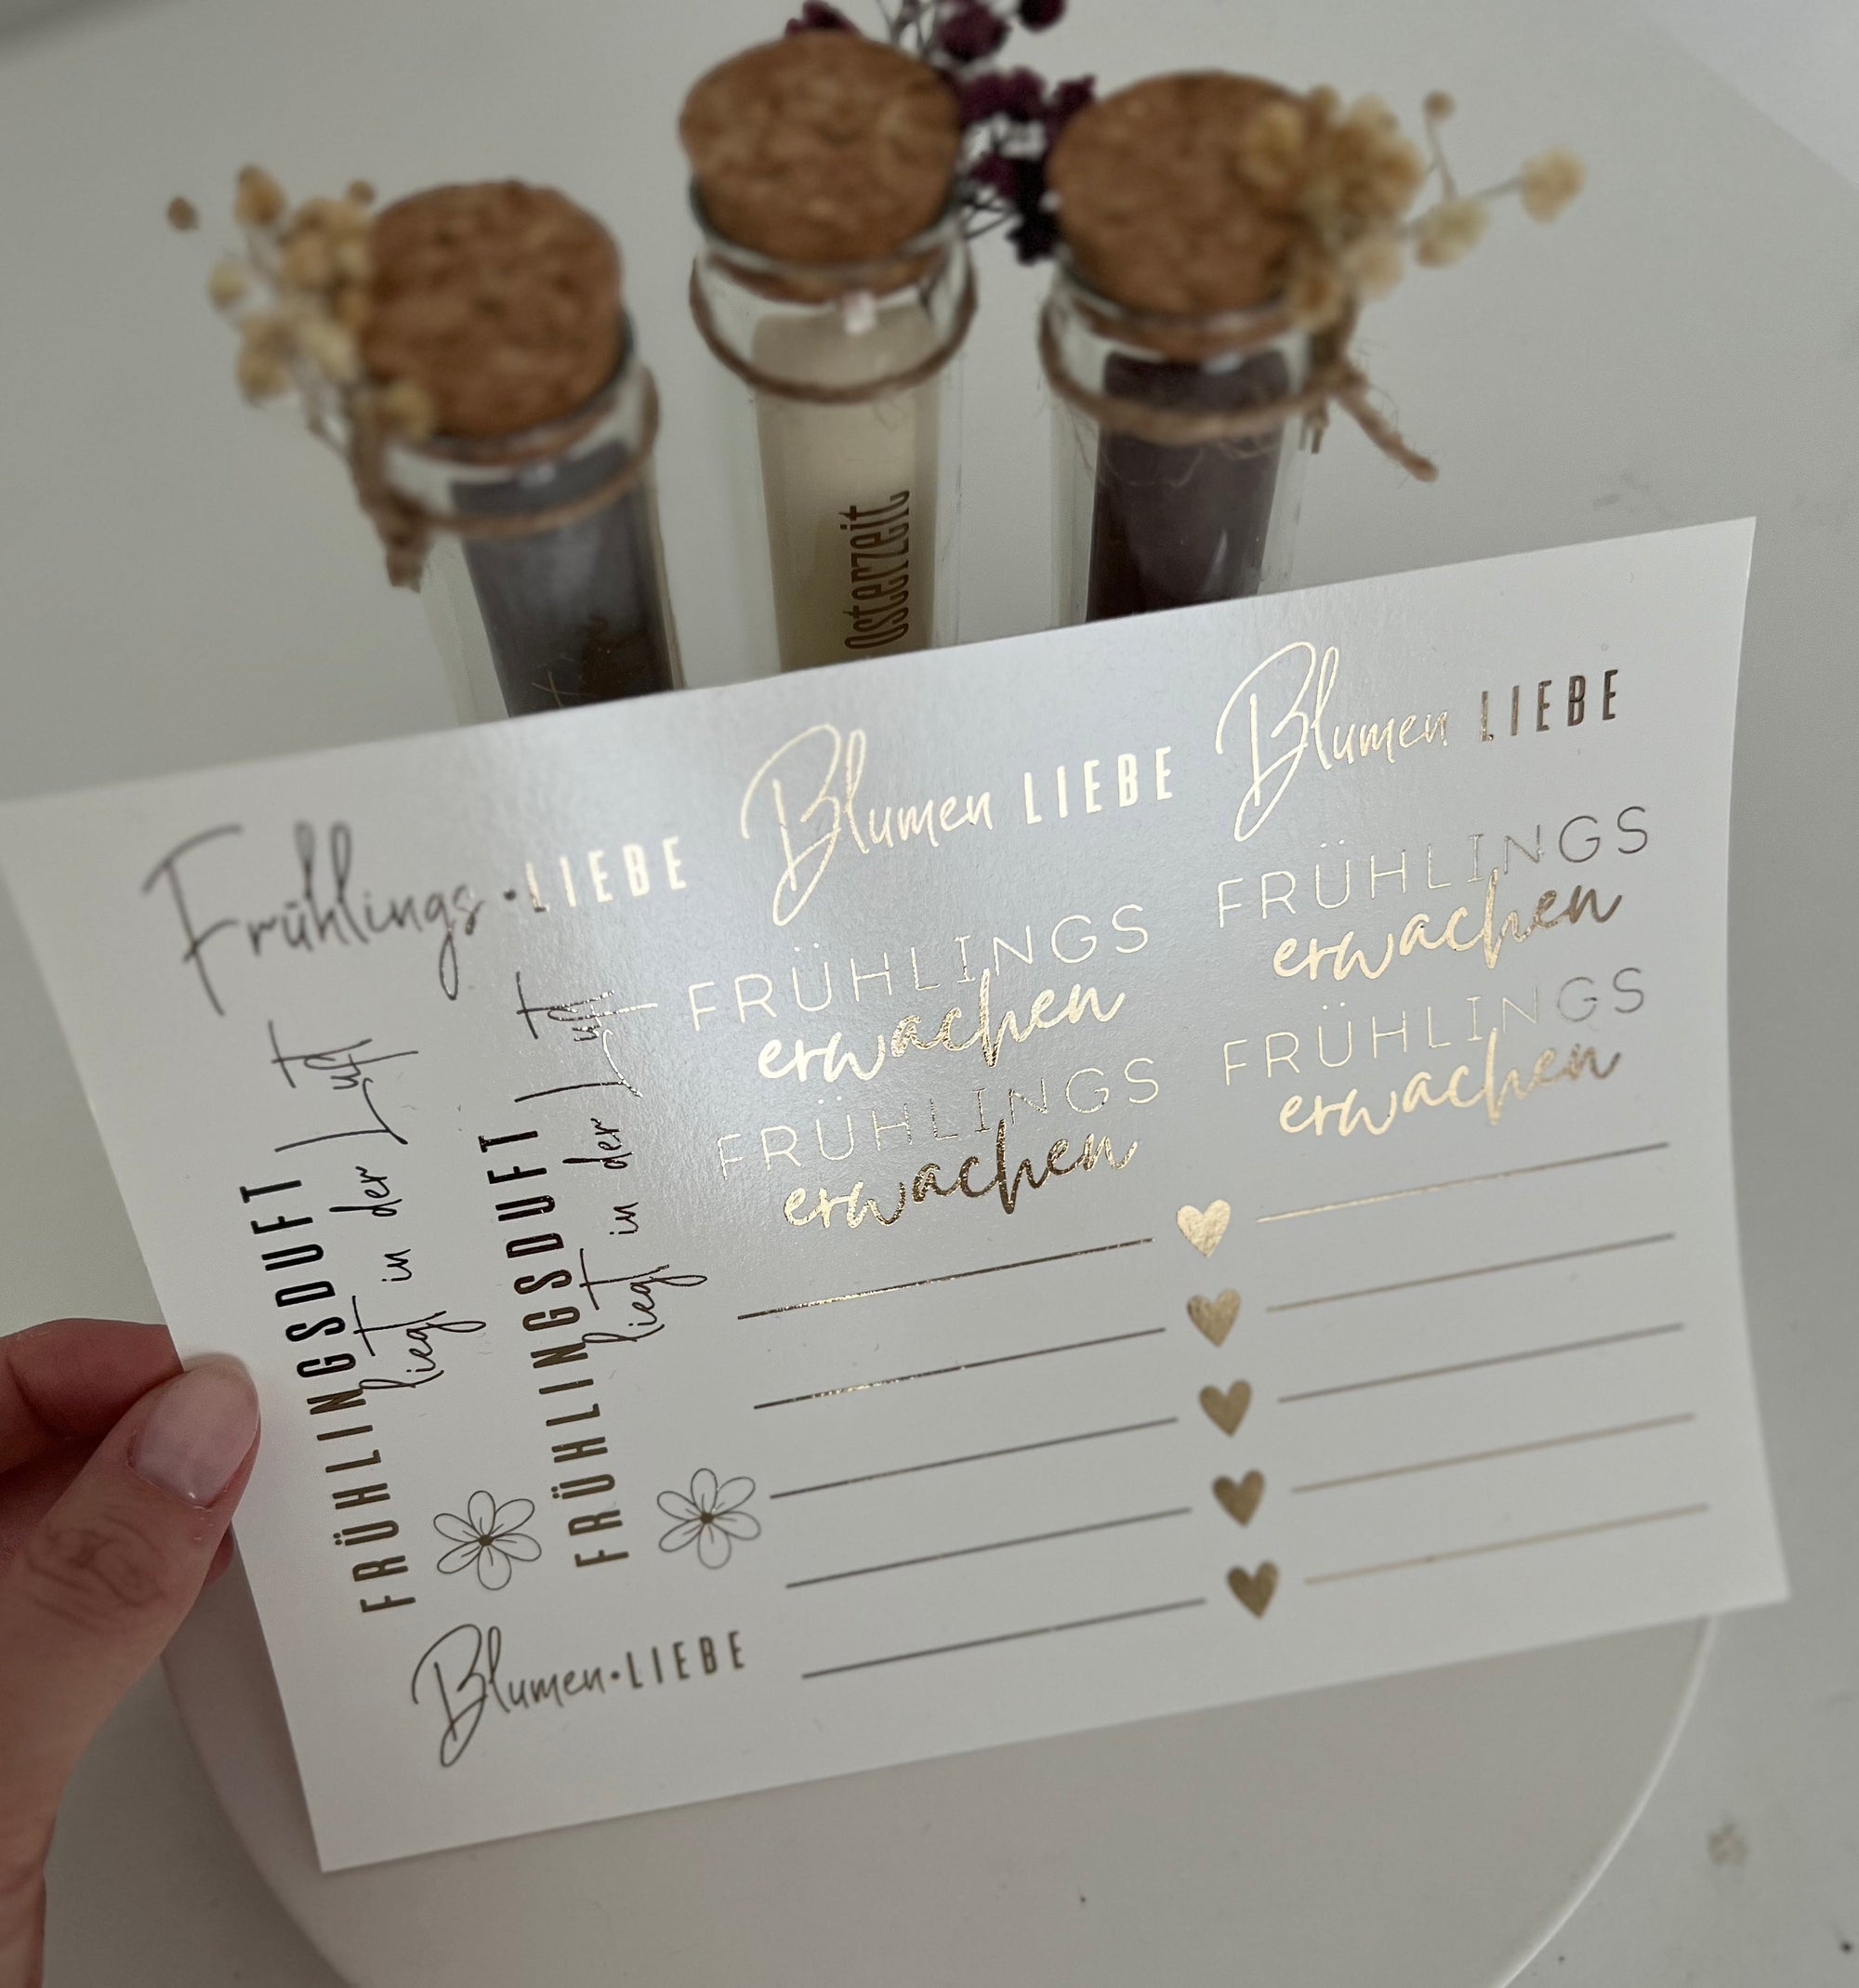 Osterzeit
Frühlings•LIEBE
Blumen LIEBE
Blumen LIEBE
FRÜHLINGS
erwachen
FRÜHLINGS
erwachen
FRÜHLINGS
erwachen
FRÜHLINGS
erwachen
FRÜHLINGSDUFT
liegt in der Luft
FRÜHLINGSDUFT
liegt in der Luft
Blumen•LIEBE